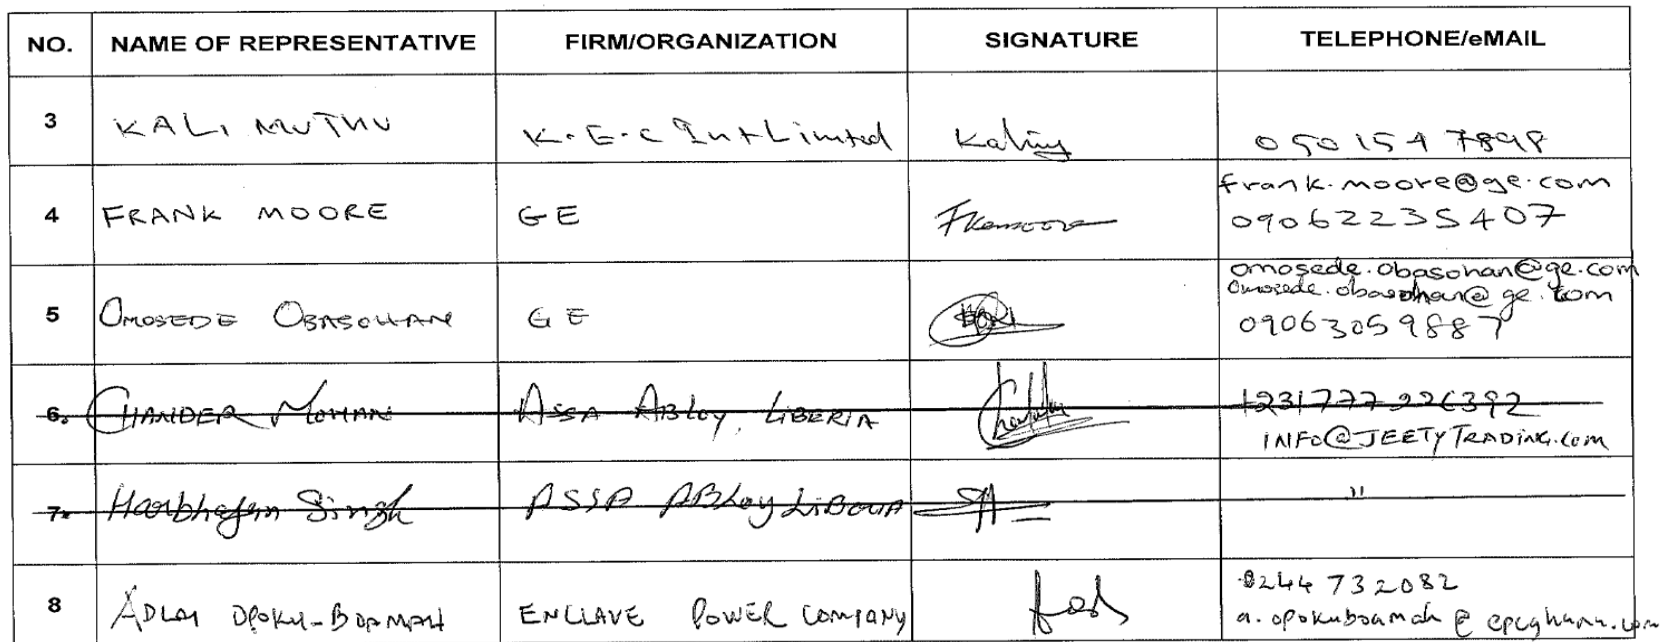 NO. NAME OF REPRESENTATIVE FIRM/ORGANIZATION SIGNATURE TELEPHONE/eMAIL
3 KALI MUTHU K.E.C Int Limited 050 154 7898
frank.moore@ge.com
4 FRANK MOORE GE 09062235407
omosede.obasohan@ge.com
Omosede.obasohan@ge.com
5 OMOSEDE OBASOHAN GE 09063059887
6. CHANDER MOHAN ASSA ABLOY, LIBERIA 1231777226392
INFO@JEETYTRADING.COM
7. Harbhajan Singh ASSA ABLOY LIBERIA "
8244 732082
8 ADLAI OPOKU-BOAMAH ENCLAVE POWER COMPANY a.opokuboamah@epcghana.com